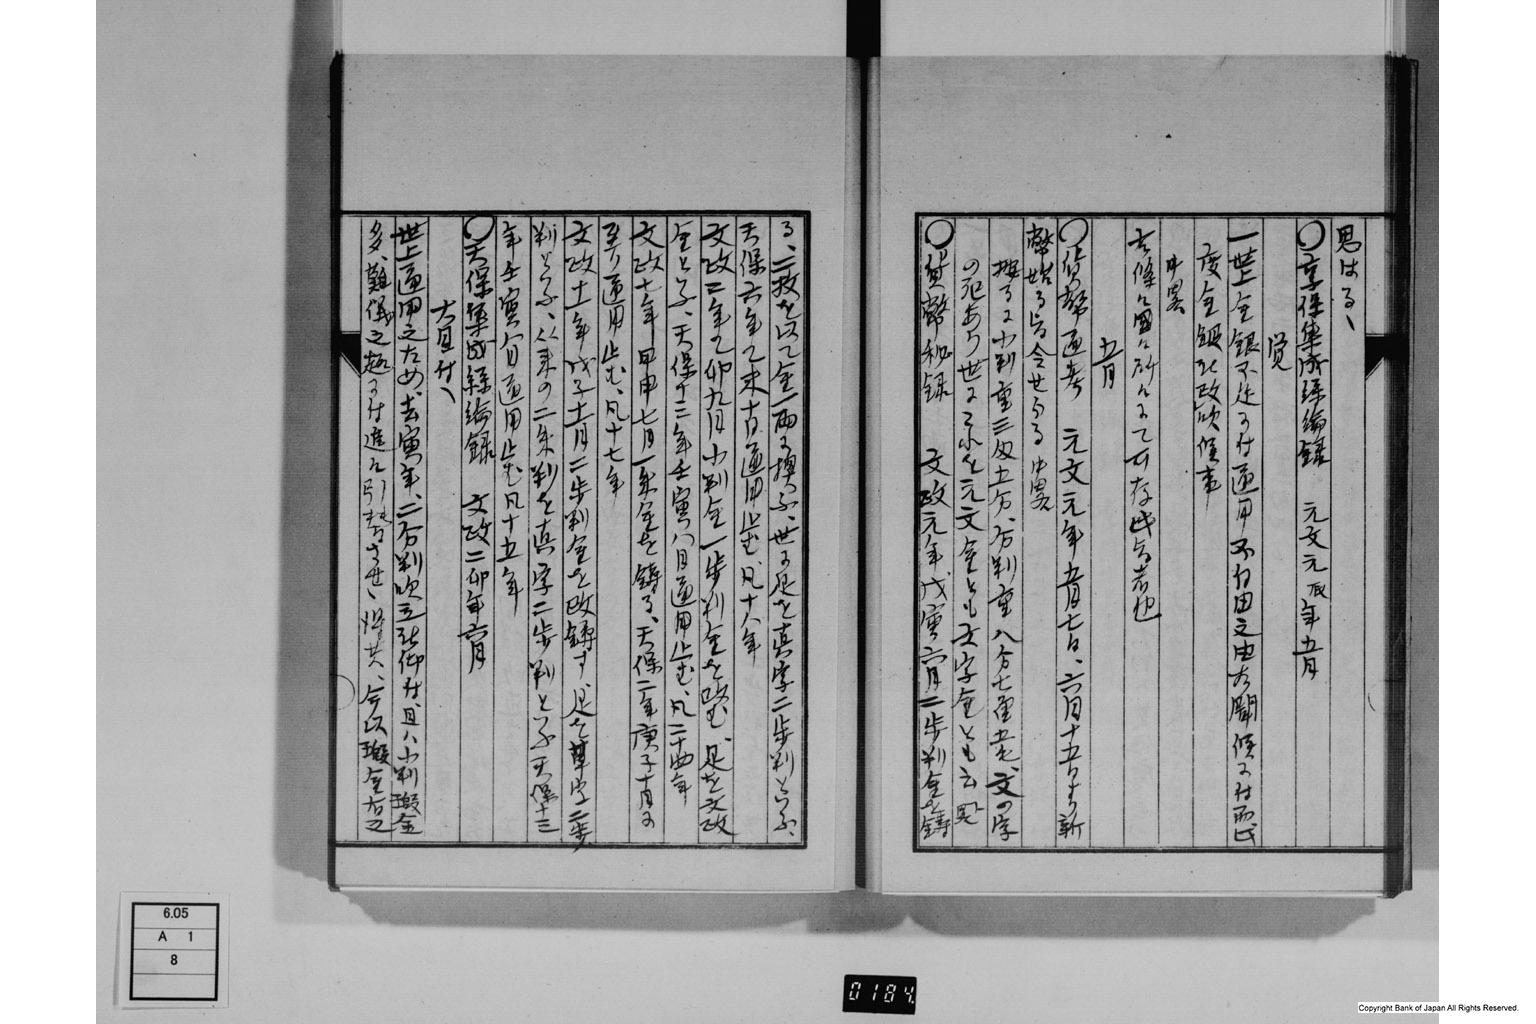 思はる、
〇享保集成絲綸録　元文元辰年五月
覚
一世上金銀不足に付通用不自由之由相聞候に付而此
度金銀吹改被候事
中畧
右條々国々所々にて可存此旨者也
五月
〇貨幣通考　元文元年五月七日、六月十五日より新
幣始る旨令せらる中畧
按るに小判重三匁五分、歩判重八分七厘五毛、文の字
の花あり世に之を元文金とも文字金とも云
〇貨幣秘録　文政元年戊寅六月二歩判金を鋳
る、二枚を以て金一両に換ふ、世に是を真字二歩判といふ、
天保六年乙未十月通用止む凡十八年
文政二年己卯九月小判金一歩判金を改む、是を文政
金といふ、天保十三年壬寅八月通用止む、凡二十四年
文政七年甲申七月一朱金を鋳る、天保二年庚子十月に
至り通用止む、凡十七年
文政十一年戊子十一月二歩判金を改鋳す是を草字二歩
判といふ、以来の二朱判を真字二歩判といふ天保十三
年壬寅八月通用止む凡十五年
〇天保集成絲綸録　文政二卯年六月
大目付へ
世上通用之ため、去寅年、二歩判吹立被仰付、且ハ小判瑕金
多、難儀之趣に付追々引替させ、候共、今以瑕金有之
6.05
A 1
8
0184
Copyright Bank of Japan All Rights Reserved.